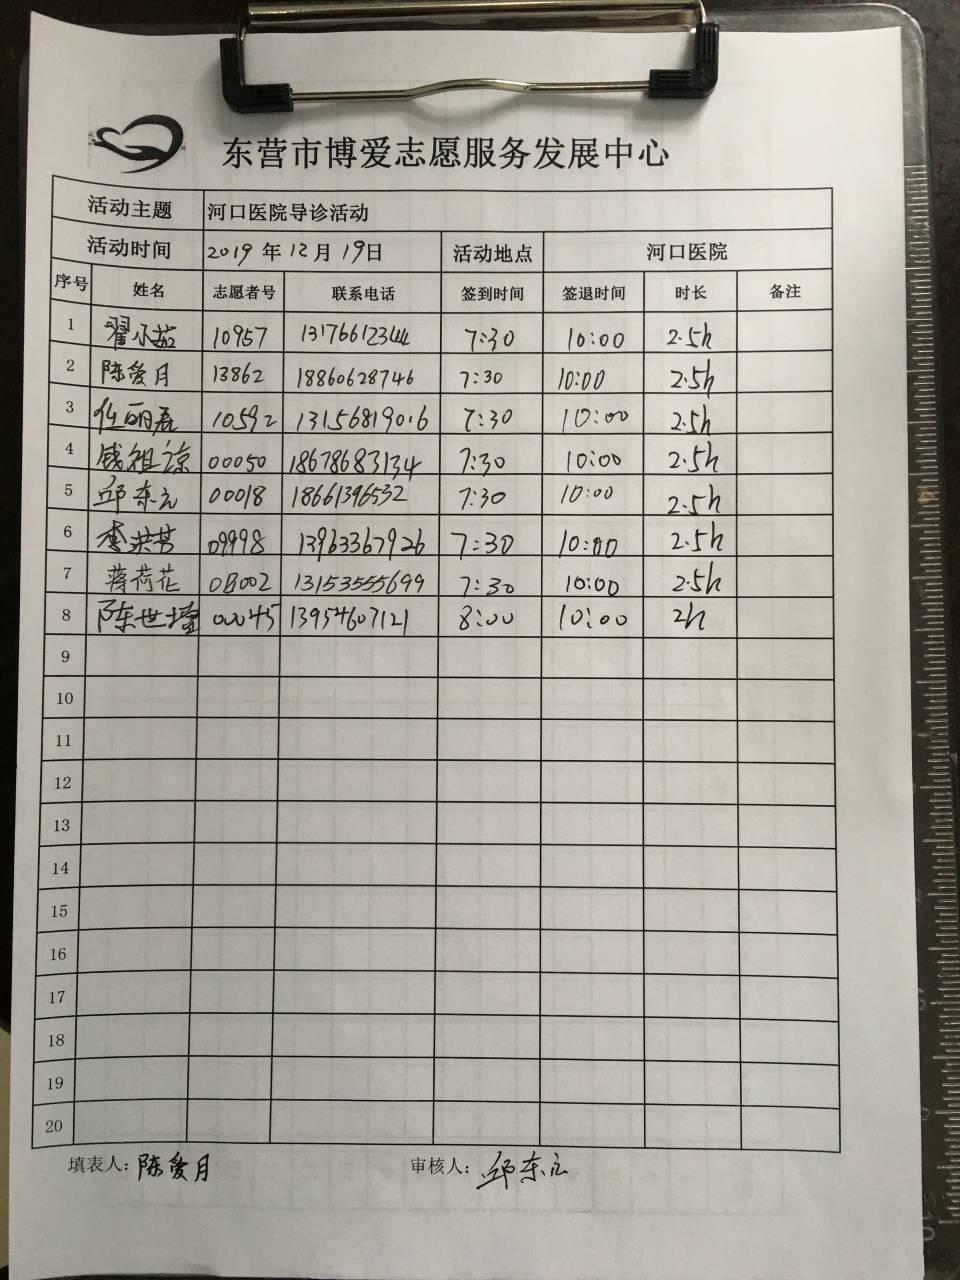 东营市博爱志愿服务发展中心
活动主题 河口医院导诊活动
活动时间 2019年12月19日 活动地点 河口医院
序号 姓名 志愿者号 联系电话 签到时间 签退时间 时长 备注
1 翟小茹 10957 13176612344 7:30 10:00 2.5h
2 陈爱月 13862 18860628746 7:30 10:00 2.5h
3 任丽磊 10592 13156819016 7:30 10:00 2.5h
4 钱祖谅 00050 18678683134 7:30 10:00 2.5h
5 邱东立 00018 18661396532 7:30 10:00 2.5h
6 李洪芳 09998 13963367926 7:30 10:00 2.5h
7 蒋荷花 08002 13153555699 7:30 10:00 2.5h
8 陈世 00045 13954607121 8:00 10:00 2h
9
10
11
12
13
14
15
16
17
18
19
20
填表人：陈爱月 审核人：邱东立